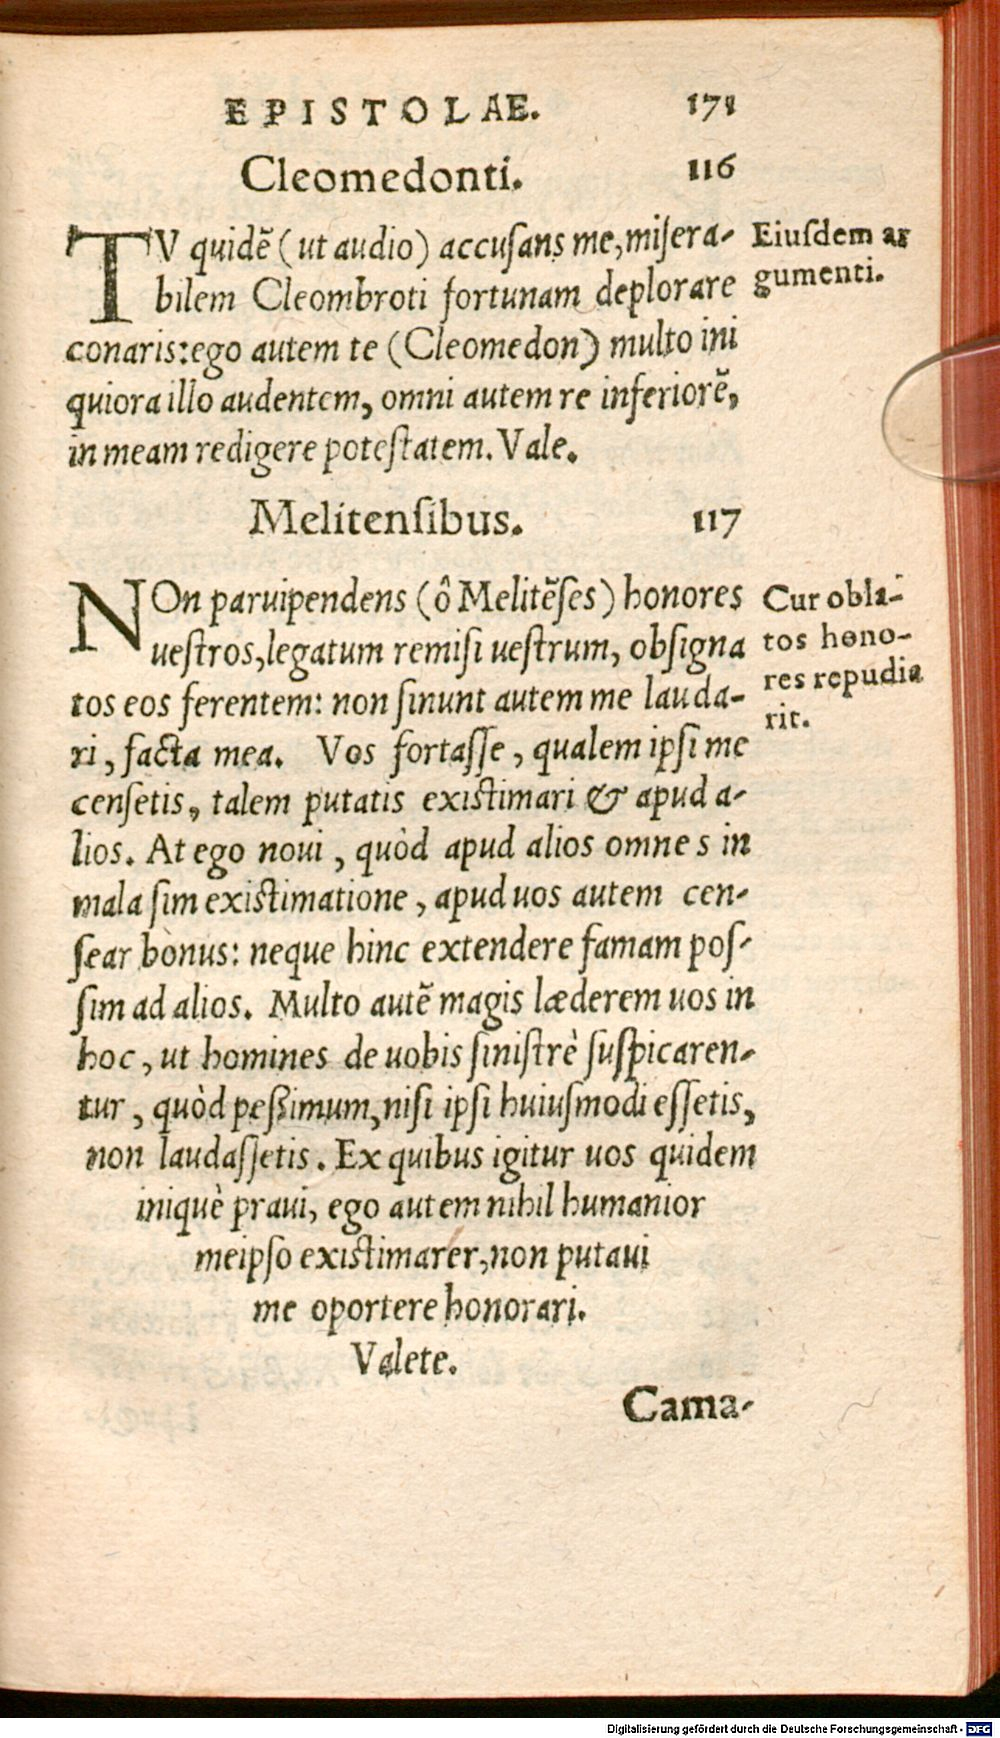 EPISTOLAE. 171
Cleomedonti. 116
TV quidē (ut audio) accusans me, misera-
bilem Cleombroti fortunam deplorare
conaris: ego autem te (Cleomedon) multo ini
quiora illo audentem, omni autem re inferiorē,
in meam redigere potestatem. Vale.
Eiusdem ar
gumenti.
Melitensibus. 117
NOn paruipendens (ô Melitēses) honores
uestros, legatum remisi uestrum, obsigna
tos eos ferentem: non sinunt autem me lauda-
ri, facta mea. Vos fortasse, qualem ipsi me
censetis, talem putatis existimari & apud a-
lios. At ego noui, quòd apud alios omnes in
mala sim existimatione, apud uos autem cen-
sear bonus: neque hinc extendere famam pos-
sim ad alios. Multo autē magis læderem uos in
hoc, ut homines de uobis sinistrè suspicaren-
tur, quòd peßimum, nisi ipsi huiusmodi essetis,
non laudassetis. Ex quibus igitur uos quidem
iniquè praui, ego autem nihil humanior
meipso existimarer, non putaui
me oportere honorari.
Valete.
Cur obla-
tos hono-
res repudia
rit.
Cama-
Digitalisierung gefördert durch die Deutsche Forschungsgemeinschaft - DFG